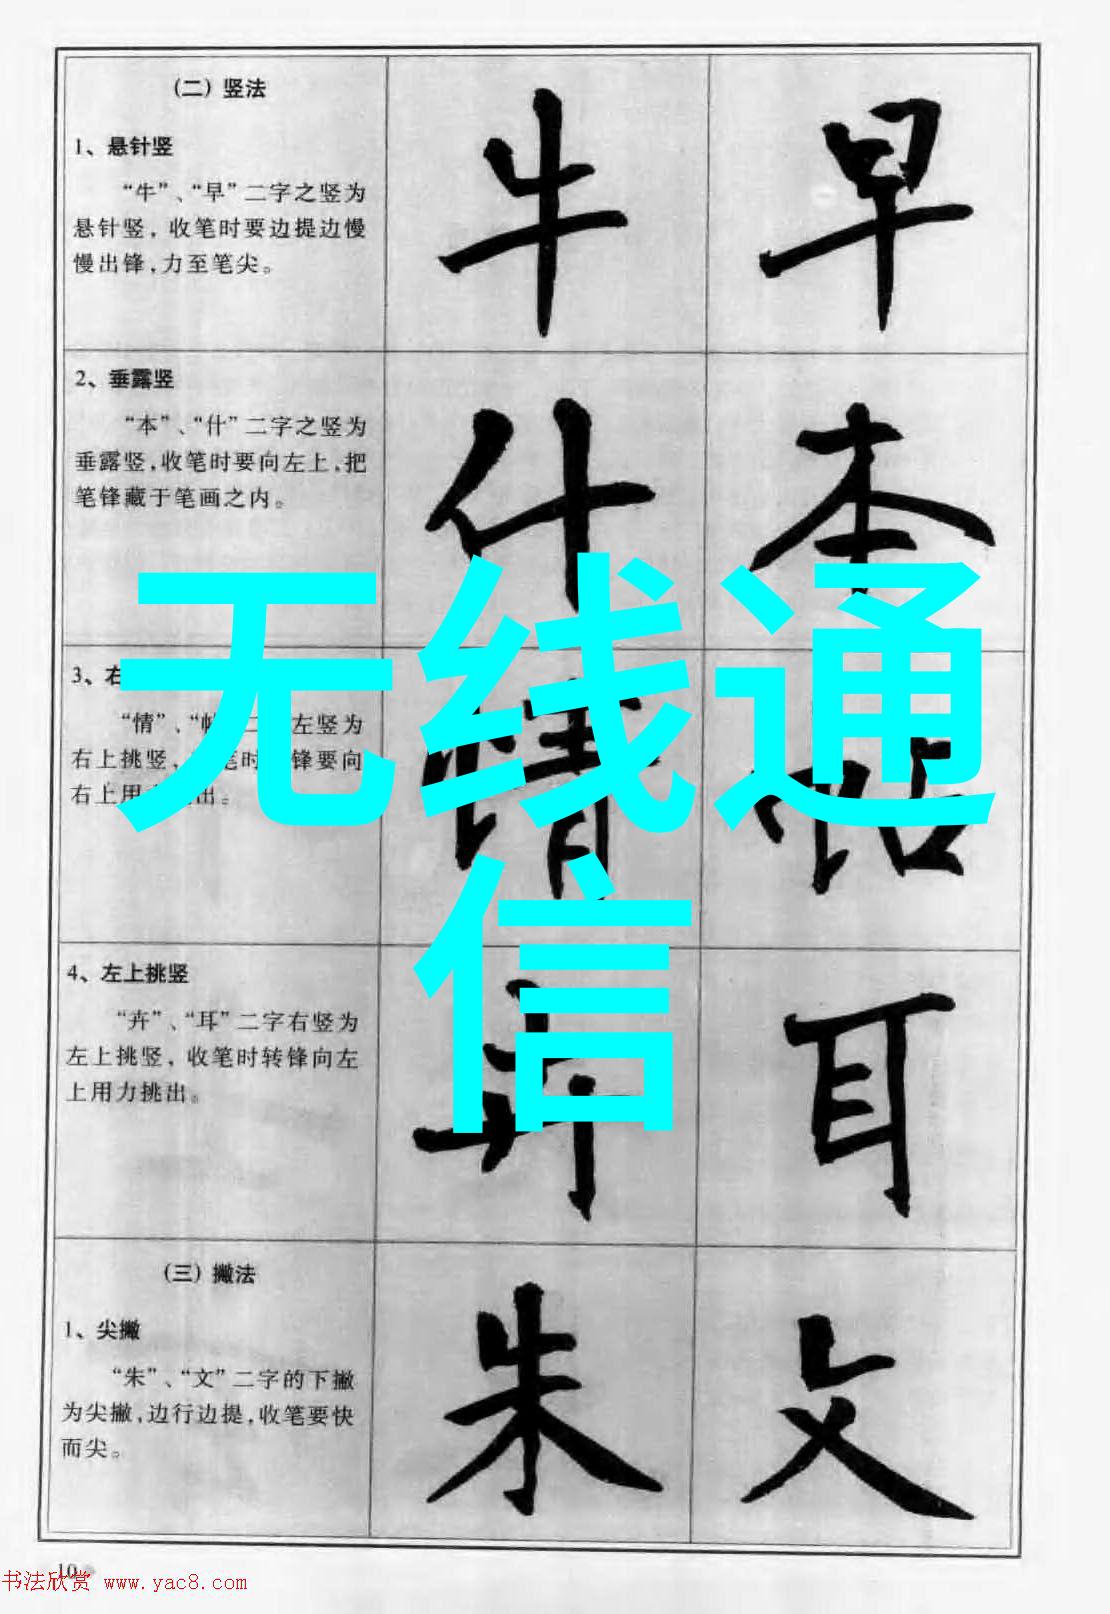 （二）竖法
1、悬针竖
“牛”、“早”二字之竖为
悬针竖，收笔时要边提边慢
慢出锋，力至笔尖。
牛 早
2、垂露竖
“本”、“什”二字之竖为
垂露竖，收笔时要向左上，把
笔锋藏于笔画之内。
什 本
无线通
信
3、右
“情”、“ 二 左竖为
右上挑竖， 笔时 锋要向
右上用 出。
情 帖
4、左上挑竖
“卉”、“耳”二字右竖为
左上挑竖，收笔时转锋向左
上用力挑出。
卉 耳
（三）撇法
1、尖撇
“朱”、“文”二字的下撇
为尖撇，边行边提，收笔要快
而尖。
朱 文
10
书法欣赏 www.yac8.com